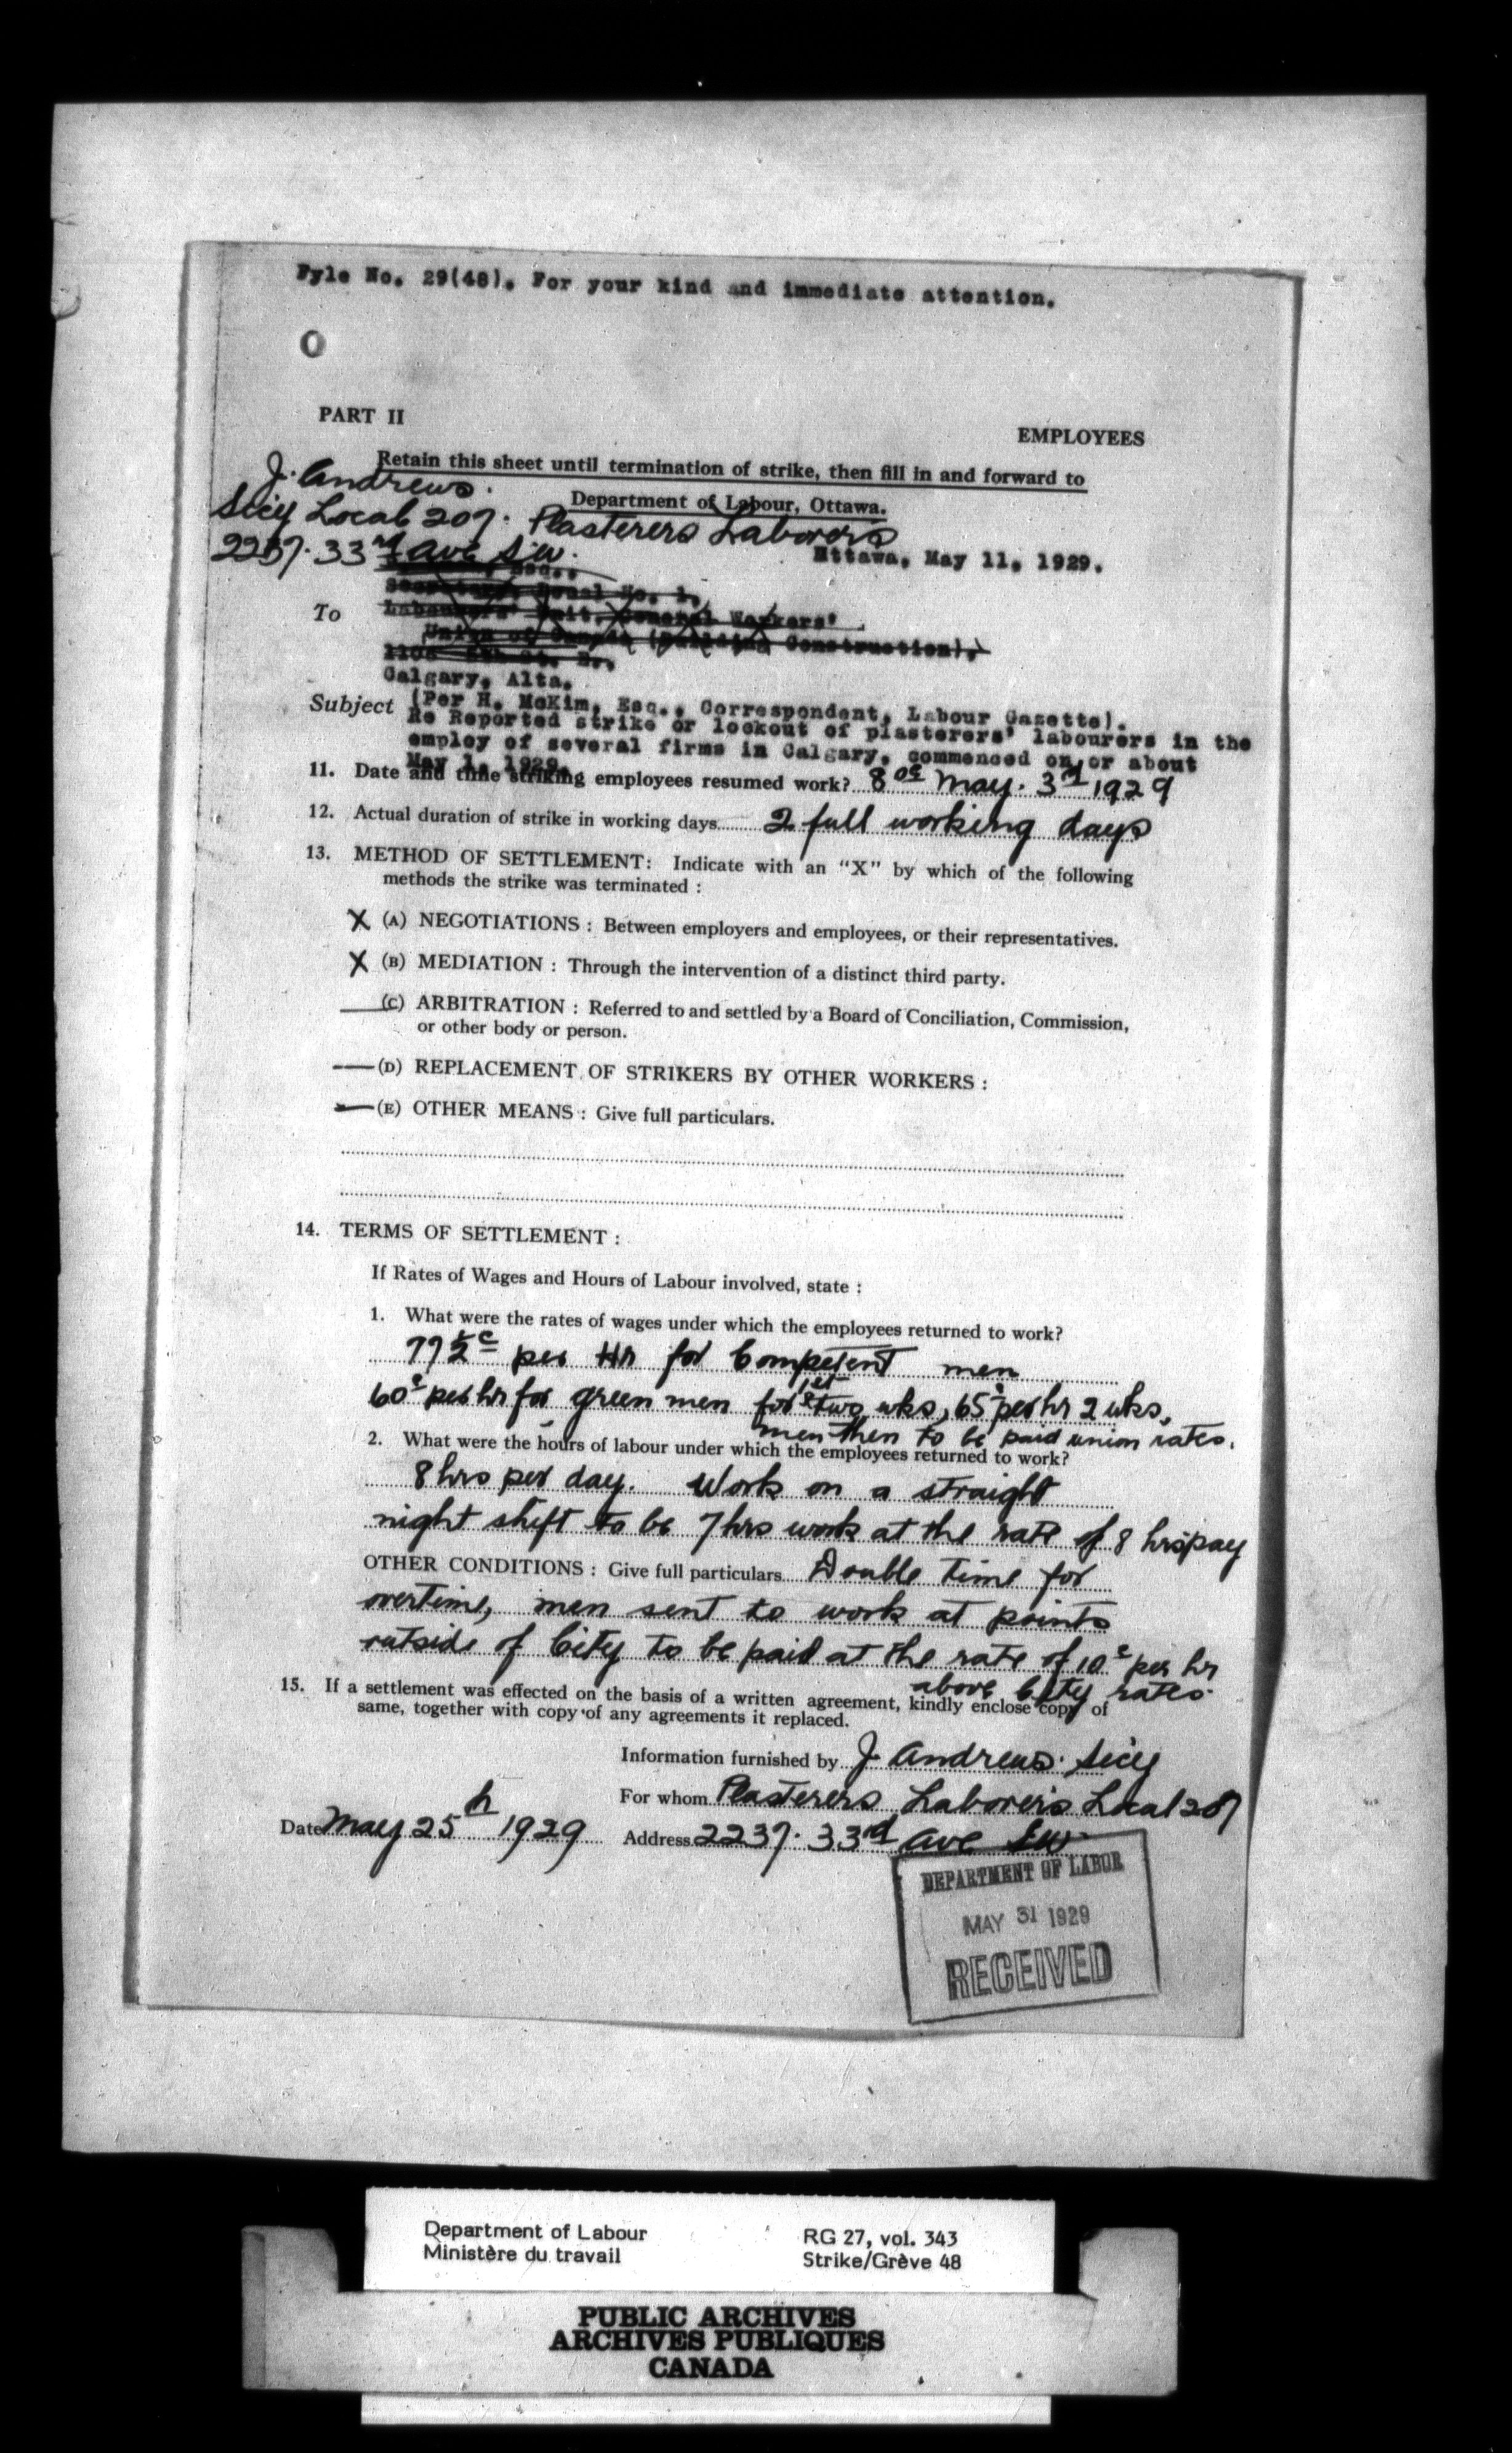 Fyle No. 29(48). For your kind and immediate attention.
O
PART II
EMPLOYEES
Retain this sheet until termination of strike, then fill in and forward to
Department of Labour, Ottawa.
J. Andrews.
Secy Local 207. Plasterers Laborers
2237. 33rd Ave S.W.
Ottawa, May 11, 1929.
Esq.,
Local No. 1,
To Labourers' Unit, General Workers'
Union of Canada (Building Construction),
Calgary, Alta.
(Per H. McKim, Esq., Correspondent, Labour Gazette).
Subject Re Reported strike or lockout of plasterers' labourers in the
employ of several firms in Calgary, commenced on or about
May 1, 1929.
11. Date and time striking employees resumed work? 8 oc May. 3rd 1929
12. Actual duration of strike in working days 2 full working days
13. METHOD OF SETTLEMENT: Indicate with an "X" by which of the following
methods the strike was terminated :
X (A) NEGOTIATIONS : Between employers and employees, or their representatives.
X (B) MEDIATION : Through the intervention of a distinct third party.
(C) ARBITRATION : Referred to and settled by a Board of Conciliation, Commission,
or other body or person.
(D) REPLACEMENT OF STRIKERS BY OTHER WORKERS :
(E) OTHER MEANS : Give full particulars.
14. TERMS OF SETTLEMENT :
If Rates of Wages and Hours of Labour involved, state :
1. What were the rates of wages under which the employees returned to work?
77½c per Hr for Competent men
60c per hr for green men for 1st two wks, 65c per hr 2 wks,
men then to be paid union rates.
2. What were the hours of labour under which the employees returned to work?
8 hrs per day. Work on a straight
night shift to be 7 hrs work at the rate of 8 hrs pay
OTHER CONDITIONS : Give full particulars Double time for
overtime, men sent to work at points
outside of City to be paid at the rate of 10c per hr
above City rates.
15. If a settlement was effected on the basis of a written agreement, kindly enclose copy of
same, together with copy of any agreements it replaced.
Information furnished by J. Andrews. Secy
For whom Plasterers Laborers Local 207
Date May 25th 1929 Address 2237. 33rd Ave SW
DEPARTMENT OF LABOR
MAY 31 1929
RECEIVED
Department of Labour
Ministère du travail
RG 27, vol. 343
Strike/Grève 48
PUBLIC ARCHIVES
ARCHIVES PUBLIQUES
CANADA